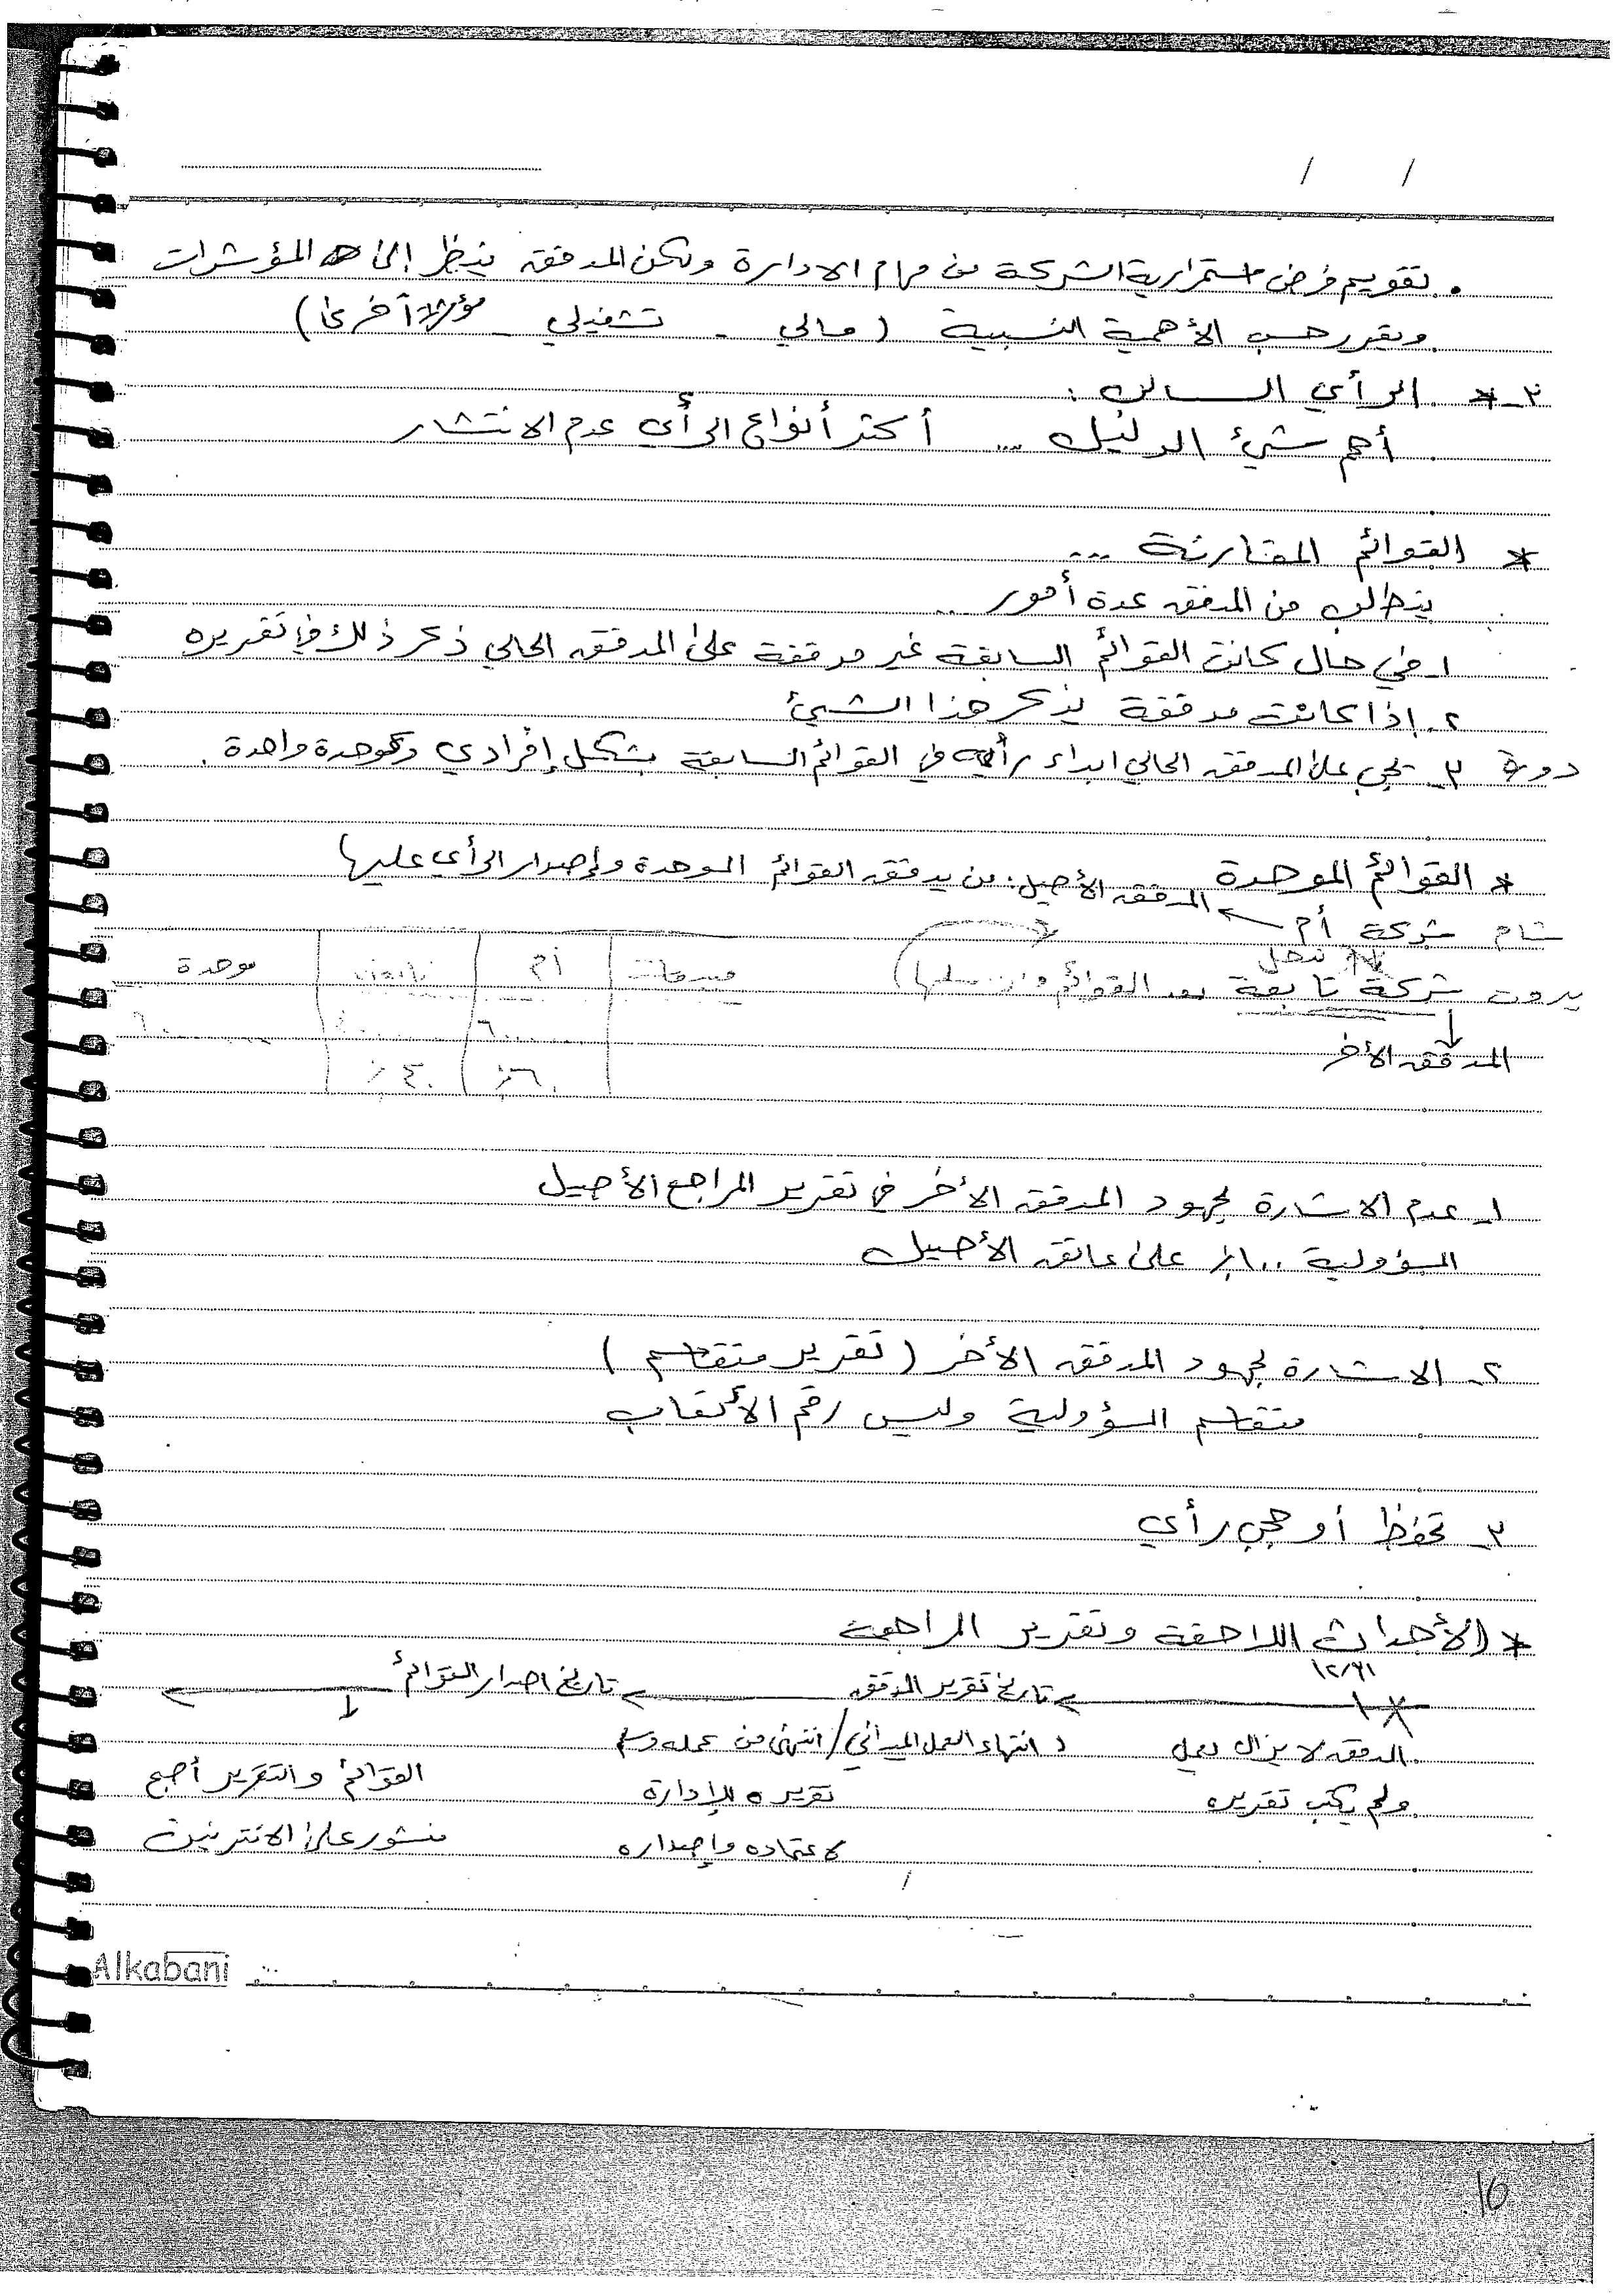 / /
. تقويم فرض استمرارية الشركة من مهام الادارة ولكن المدقق ينظر إلى المؤشرات
ويقرر حسب الأهمية النسبية ( مالي - تشغيلي - مؤشرات أخرى )
٣- * الرأي السالب :
أهم شيئ الدليل ... أكثر أنواع الرأي عدم الانتشار
* القوائم المقارنة ...
يتطلب من المدقق عدة أمور ..
١- في حال كانت القوائم السابقة غير مدققة على المدقق الحالي ذكر ذلك في تقريره
٢- إذا كانت مدققة يذكر هذا الشيئ
دورة ٣- يجب على المدقق الحالي ابداء رأيه في القوائم السابقة بشكل إفرادي وكوحدة واحدة .
* القوائم الموحدة
المدقق الأصيل : من يدقق القوائم الموحدة وإصدار الرأي عليها
شام شركة أم ←
بيروت شركة تابعة القوائم
المدقق الأخر
مبيعات | أم | تابعة | موحدة
٦٠٪ | ٤٠٪
١- عدم الاشارة لجهود المدقق الأخر في تقرير المراجع الأصيل
المسؤولية .. على عاتق الأصيل
٢- الاشارة لجهود المدقق الأخر ( تقرير متقاسم )
متقاسم المسؤولية وليس رقم الأتعاب
٣- تحفظ أو حجب رأي
* الأحداث اللاحقة وتقرير المراجعة
١٢/٣١
تاريخ تقرير المدقق ← تاريخ اصدار القوائم
المدقق لا يزال يعمل
ولم يكتب تقريره
انتهاء العمل الميداني / انتهى من عمله وسلم
تقريره للإدارة
لاعتماده وإصداره
القوائم والتقرير أصبح
منشور على الانترنيت
Alkabani
16